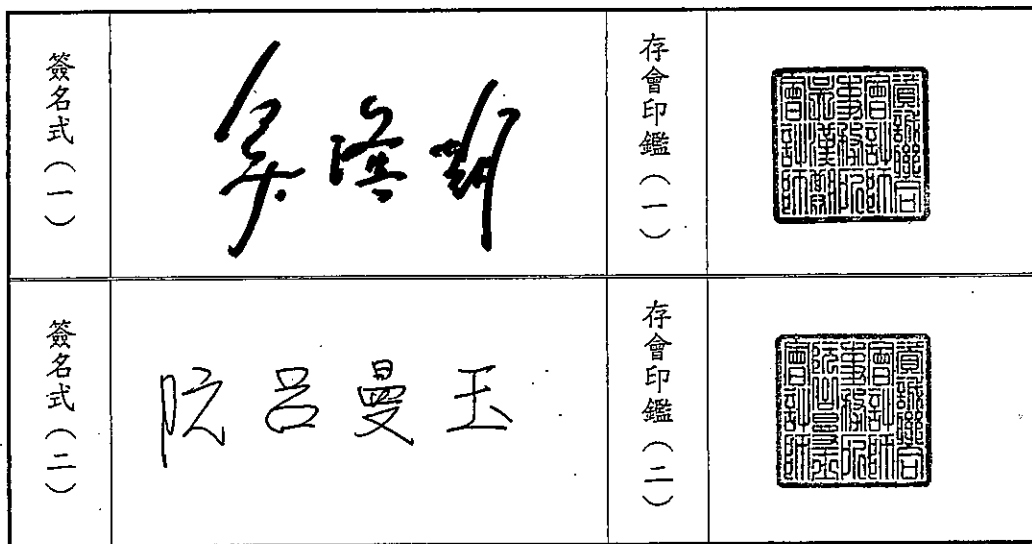 簽名式(一)
吳漢期
存會印鑑(一)
資誠聯合
會計師
事務所
吳漢期
會計師
簽名式(二)
阮呂曼玉
存會印鑑(二)
資誠聯合
會計師
事務所
阮呂曼玉
會計師